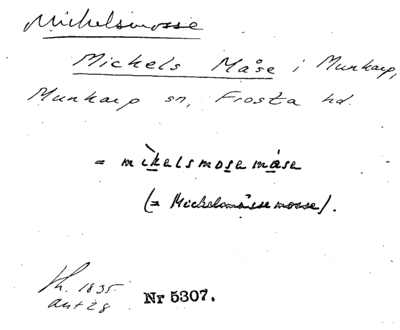 Michelsmosse
Michels Måse i Munkarp,
Munkarp sn, Frosta hd.
= mìhelsmosemåse
(= Michelsmåssemosse).
1835
ant 28
Nr 5307.